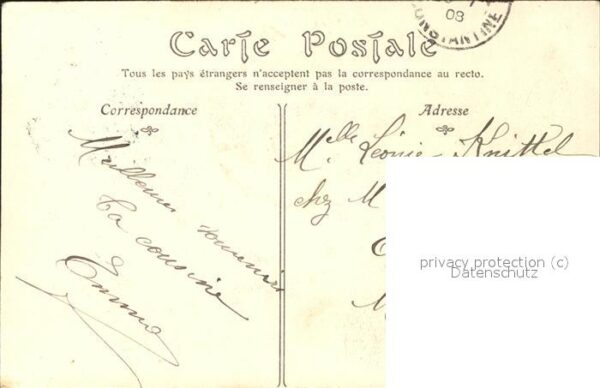 08
CONSTANTINE
Carte Postale
Tous les pays étrangers n'acceptent pas la correspondance au recto.
Se renseigner à la poste.
Correspondance
Meilleur souvenir
Ta cousine
Emma
Adresse
Melle Léonie Knittel
chez M
privacy protection (c)
Datenschutz